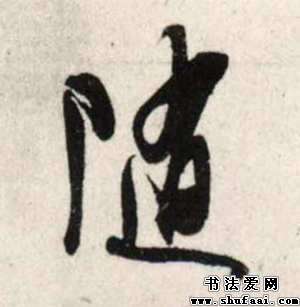 随
书法爱网
www.shufaai.com